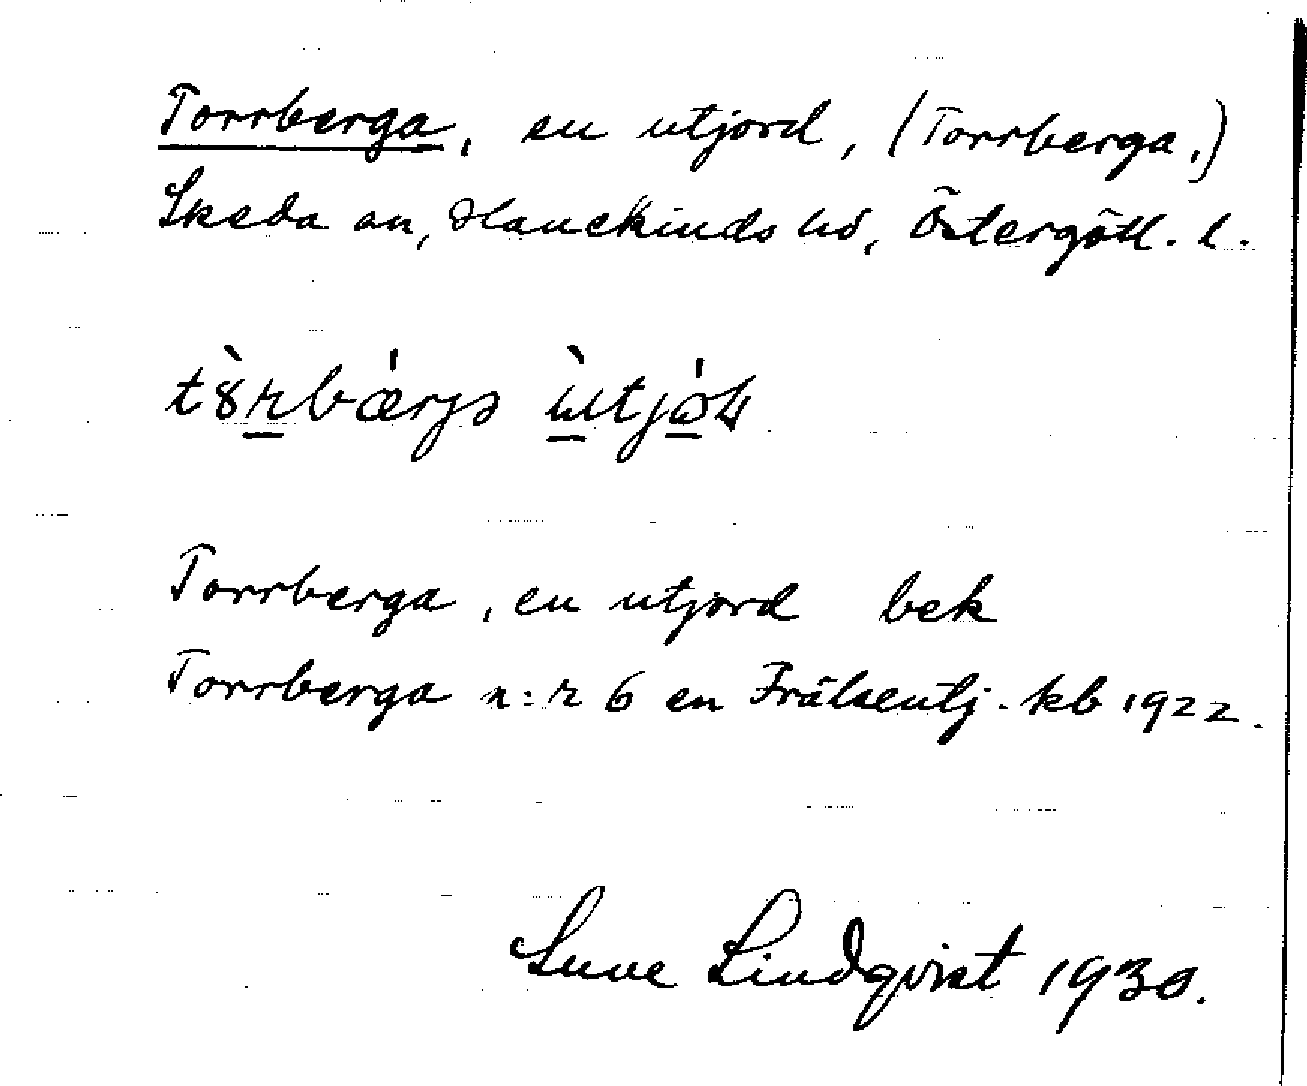 Torrberga, en utjord, (Torrberga.)
Skeda sn, Hanekinds hd, Östergötl. l.
t8̀rbǽrjə ùtjó
Torrberga, en utjord bek
Torrberga n:r 6 en Frälseutj. kb 1922.
Sune Lindqvist 1930.